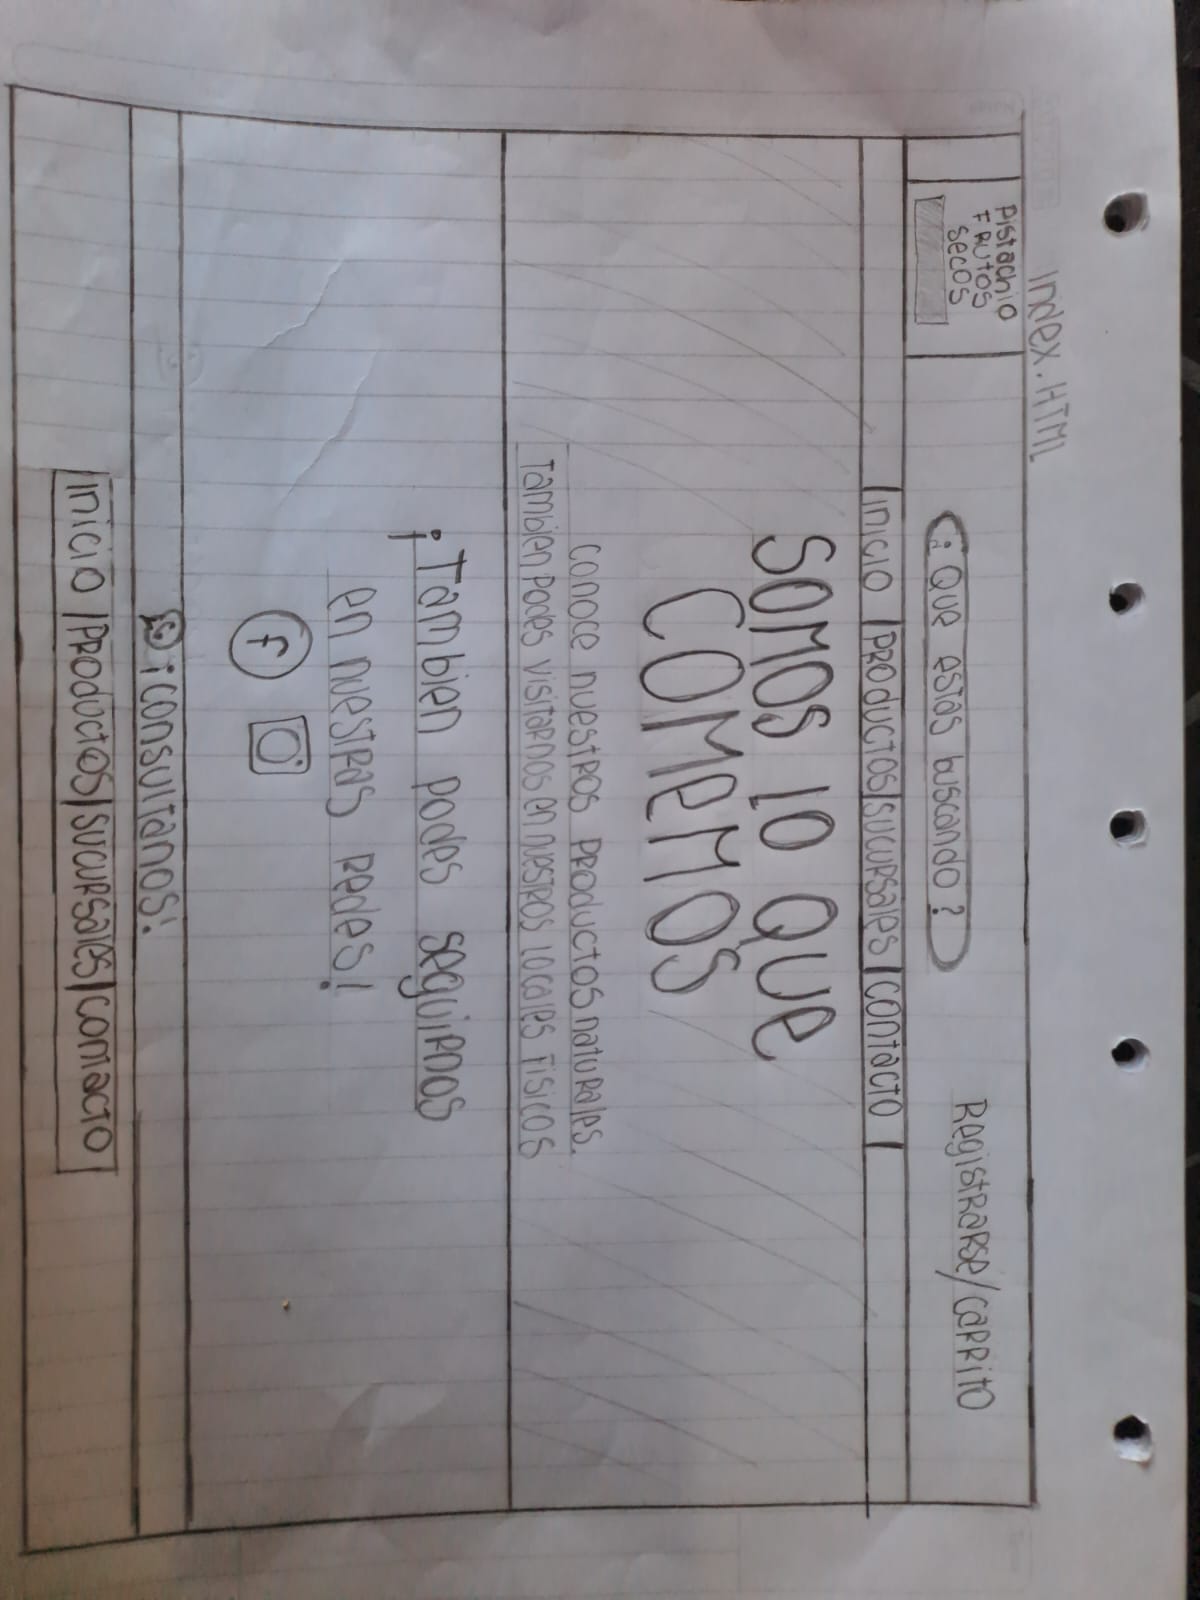 Index.HTML
Pistachio
FRUTOS
secos
¿Que estas buscando?
Registrarse/carrito
inicio |Productos|sucursales|contacto|
SOMOS LO QUE
COMEMOS
conoce nuestros productos naturales.
Tambien podes visitarnos en nuestros locales fisicos
¡Tambien podes seguirnos
en nuestras redes!
f
¡consultanos!
inicio |Productos|sucursales|contacto|